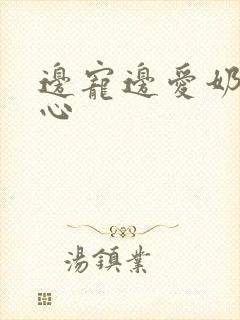 邊寵邊愛奶
心
湯鎮業